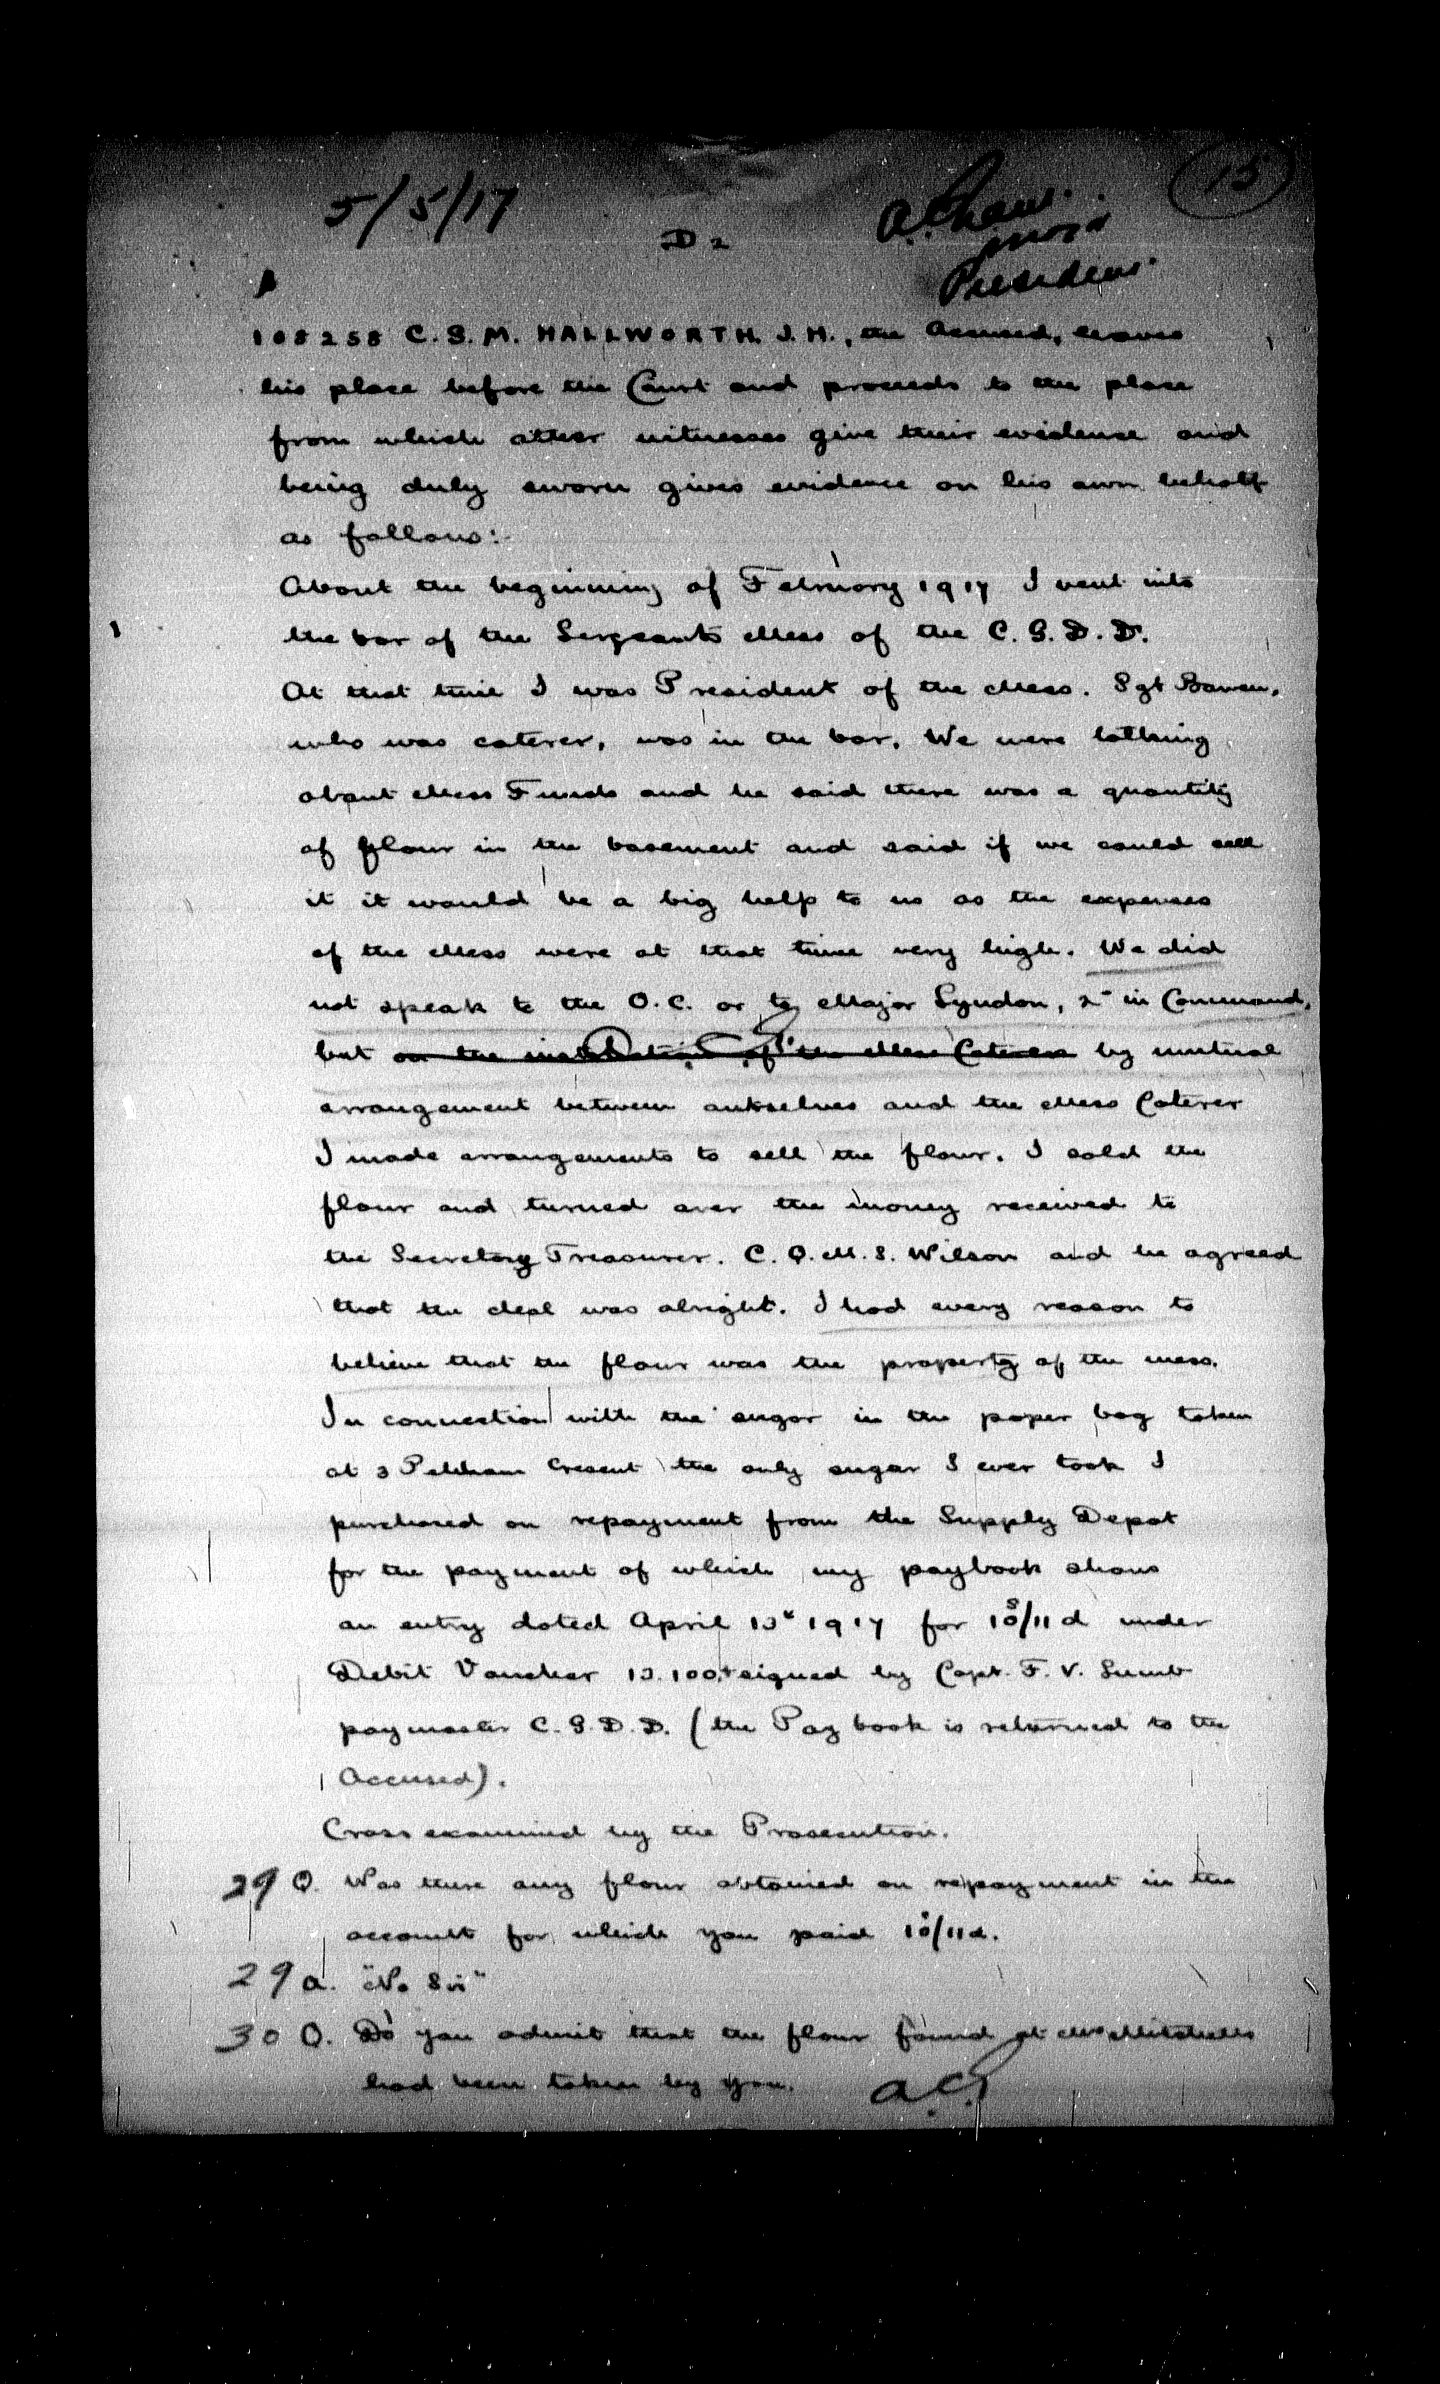 15
5/5/17
D 2
Major
President.
108258 C.S.M. HALLWORTH. J.H., the Accused, leaves
his place before the Court and proceeds to the place
from which other witnesses give their evidence and
being duly sworn gives evidence on his own behalf
as follows:-
About the beginning of February 1917 I went into
the bar of the Sergeants Mess of the C.G.D.D.
At that time I was President of the Mess. Sgt Bowen,
who was caterer, was in the bar. We were talking
about Mess Funds and he said there was a quantity
of flour in the basement and said if we could sell
it it would be a big help to us as the expenses
of the Mess were at that time very high. We did
not speak to the O.C. or to Major Lyndon, 2nd in Command,
but on the instruction of the Mess Caterer by mutual
arrangement between ourselves and the Mess Caterer
I made arrangements to sell the flour. I sold the
flour and turned over the money received to
the Secretary Treasurer. C.Q.M.S. Wilson and he agreed
that the deal was alright. I had every reason to
believe that the flour was the property of the mess.
In connection with the sugar in the paper bag taken
at 3 Pelham Cresent the only sugar I ever took I
purchased on repayment from the Supply Depot
for the payment of which my paybook shows
an entry dated April 13th 1917 for 10s/11d under
Debit Voucher 13.100. signed by Capt. F. V. Lumb
paymaster C.G.D.D. (the Pay book is returned to the
Accused).
Cross examined by the Prosecution.
29 Q. Was there any flour obtained on repayment in the
account for which you paid 10s/11d.
29 a. "No Sir"
30 Q. Do you admit that the flour found at Mrs Mitchells
had been taken by you.